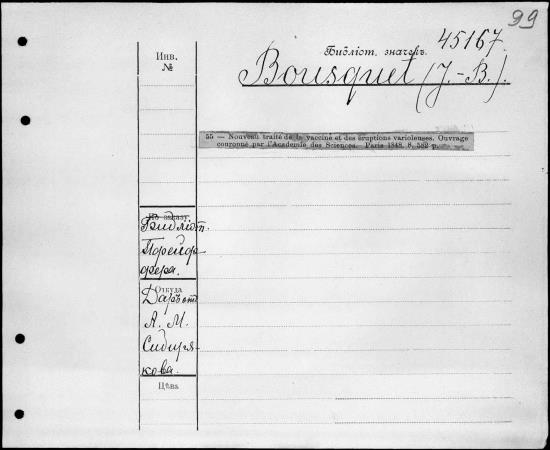 99
45167.
Инв.
№
Библіот. значекъ.
Bousquet (J.-B.).
55 — Nouveau traité de la vaccine et des éruptions varioleuses. Ouvrage
couronné par l'Académie des Sciences. Paris 1848. 8. 582 p.
По заказу.
Библіот.
Порейф
фера.
Откуда
Даръ от
А. М.
Сибиря-
кова.
Цѣна